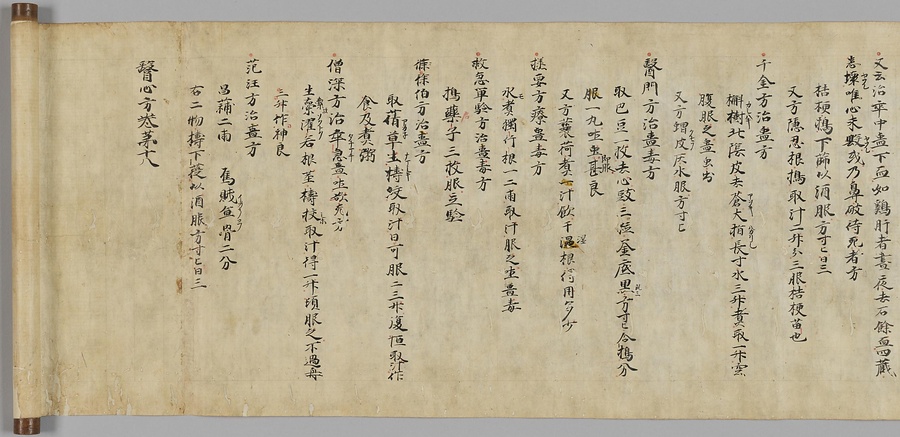 又云治卒中蛊下血如鶏肝者晝夜去石餘血四蔵
悉壊唯心未毀或乃鼻破待死者方
桔梗搗下篩以酒服方寸匕日三
又方隠忍根搗取汁二升分三服桔梗苗也
千金方治蛊方
槲樹北陰皮去蒼大指長寸水三升煮取一升空
腹服之蛊虫出
又方蝟皮灰水服方寸匕
醫門方治蛊毒方
取巴豆一枚去心 三 釜底黒方寸匕合搗分
服一丸吐虫 良
又方蘘荷煮 汁飲千 根 用多少
揺要方療蛊毒方
水煮獨行根一二兩取汁服之 蛊毒
救急單験方治蛊毒方
搗 子三枚服立験
葆休伯方治蛊方
取猪草生檮絞取汁日可服二三升復恒取汁作
食及煮粥
僧深方治卒急蛊吐欲死方
生索濯右根茎檮 取汁得一升頓服之不過再
三升作神良
范汪方治蛊方
昌蒲二兩 烏賊魚骨二分
右二物檮下篩以酒服方寸匕日三
醫心方巻第十八